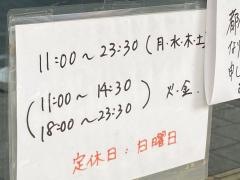 11:00〜23:30 (月・水・木・土)
(11:00〜14:30
18:00〜23:30) 火・金
定休日:日曜日
都